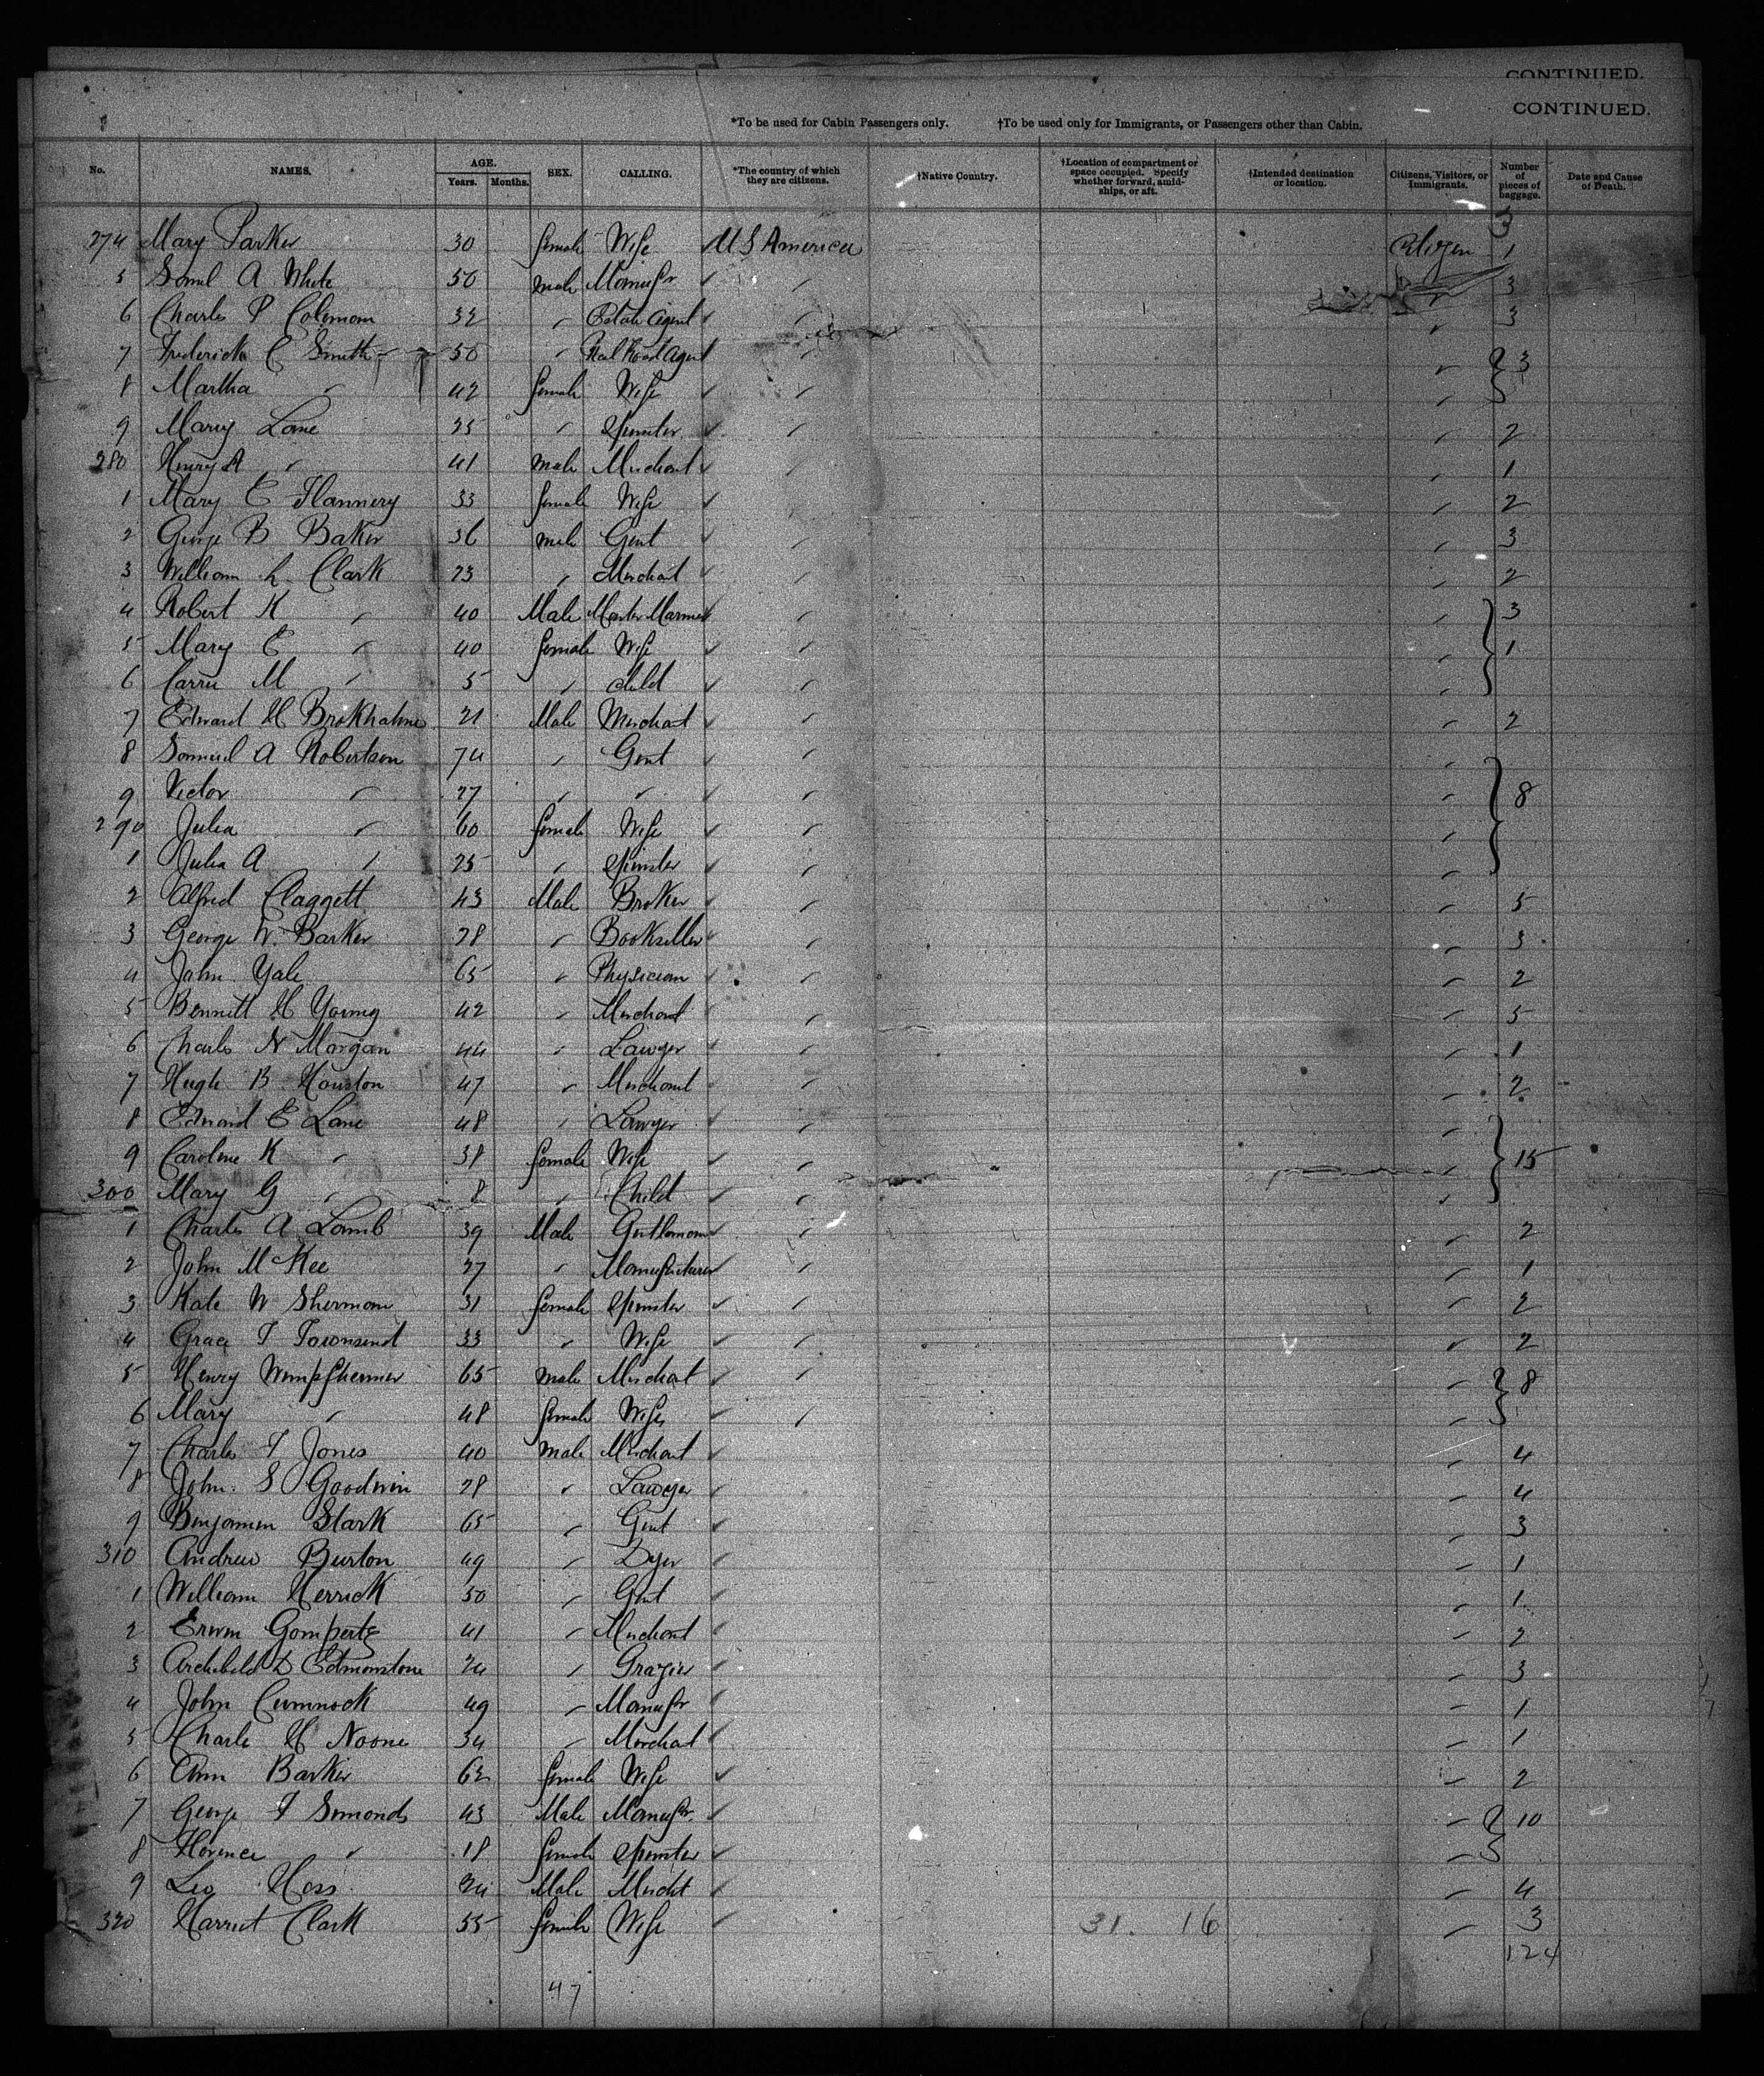 CONTINUED.
CONTINUED.
*To be used for Cabin Passengers only. †To be used only for Immigrants, or Passengers other than Cabin.
No. NAMES. AGE. Years. Months. SEX. CALLING. *The country of which they are citizens. †Native Country. †Location of compartment or space occupied. Specify whether forward, amidships, or aft. †Intended destination or location. Citizens, Visitors, or Immigrants. Number of pieces of baggage. Date and Cause of Death.
3
274 Mary Parker 30 female Wife U S America Citizen 1
5 Saml A White 50 male Manufr 3
6 Charles P Coleman 32 〃 Estate Agent 3
7 Frederick C Smith 50 〃 Real Road Agent 3
8 Martha 〃 42 female Wife
9 Mary Lane 25 〃 Spinster 2
280 Henry A 〃 41 male Merchant 1
1 Mary C Flannery 33 female Wife 2
2 George B Baker 36 male Gent 3
3 William L Clark 23 〃 Merchant 2
4 Robert K 〃 40 Male Master Mariner 3
5 Mary E 〃 40 female Wife 1
6 Carrie M 〃 5 〃 Child
7 Edward H Brokhahne 21 Male Merchant 2
8 Samuel A Robertson 74 〃 Gent
9 Victor 〃 27 〃 〃 8
290 Julia 〃 60 female Wife
1 Julia A 〃 25 〃 Spinster
2 Alfred Claggett 43 Male Broker 5
3 George W. Barker 28 〃 Bookseller 3
4 John Yale 65 〃 Physician 2
5 Bennett H Young 42 〃 Merchant 5
6 Charles N Morgan 44 〃 Lawyer 1
7 Hugh B Houston 47 〃 Merchant 2
8 Edward E Lane 48 〃 Lawyer
9 Caroline K 〃 38 female Wife 15
300 Mary G 〃 8 〃 Child
1 Charles A Lamb 39 Male Gentleman 2
2 John McKee 27 〃 Manufacturer 1
3 Kate W Sherman 31 female Spinster 2
4 Grace T Townsend 33 〃 Wife 2
5 Henry Wimpfheimer 65 male Merchant 8
6 Mary 〃 48 female Wife
7 Charles T Jones 40 male Merchant 4
8 John S Goodwin 28 〃 Lawyer 4
9 Benjamin Stark 65 〃 Gent 3
310 Andrew Burton 49 〃 Dyer 1
1 William Herrick 50 〃 Gent 1
2 Erwin Gompertz 41 〃 Merchant 2
3 Archibald D Edmonstone 24 〃 Grazier 3
4 John Cumnock 49 〃 Manufr 1
5 Charles H Noone 34 〃 Merchant 1
6 Ann Barker 62 female Wife 2
7 George F Simonds 43 Male Manufr. 10
8 Florence 〃 18 female Spinster
9 Leo Hess 24 Male Mercht 4
320 Harriet Clark 55 female Wife 31. 16 3
124
47